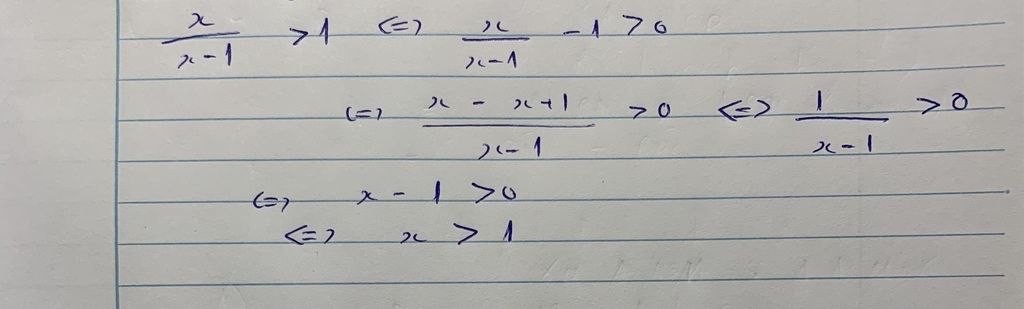 x/(x-1) > 1 <=> x/(x-1) - 1 > 0
<=> (x - x+1)/(x-1) > 0 <=> 1/(x-1) > 0
<=> x - 1 > 0
<=> x > 1